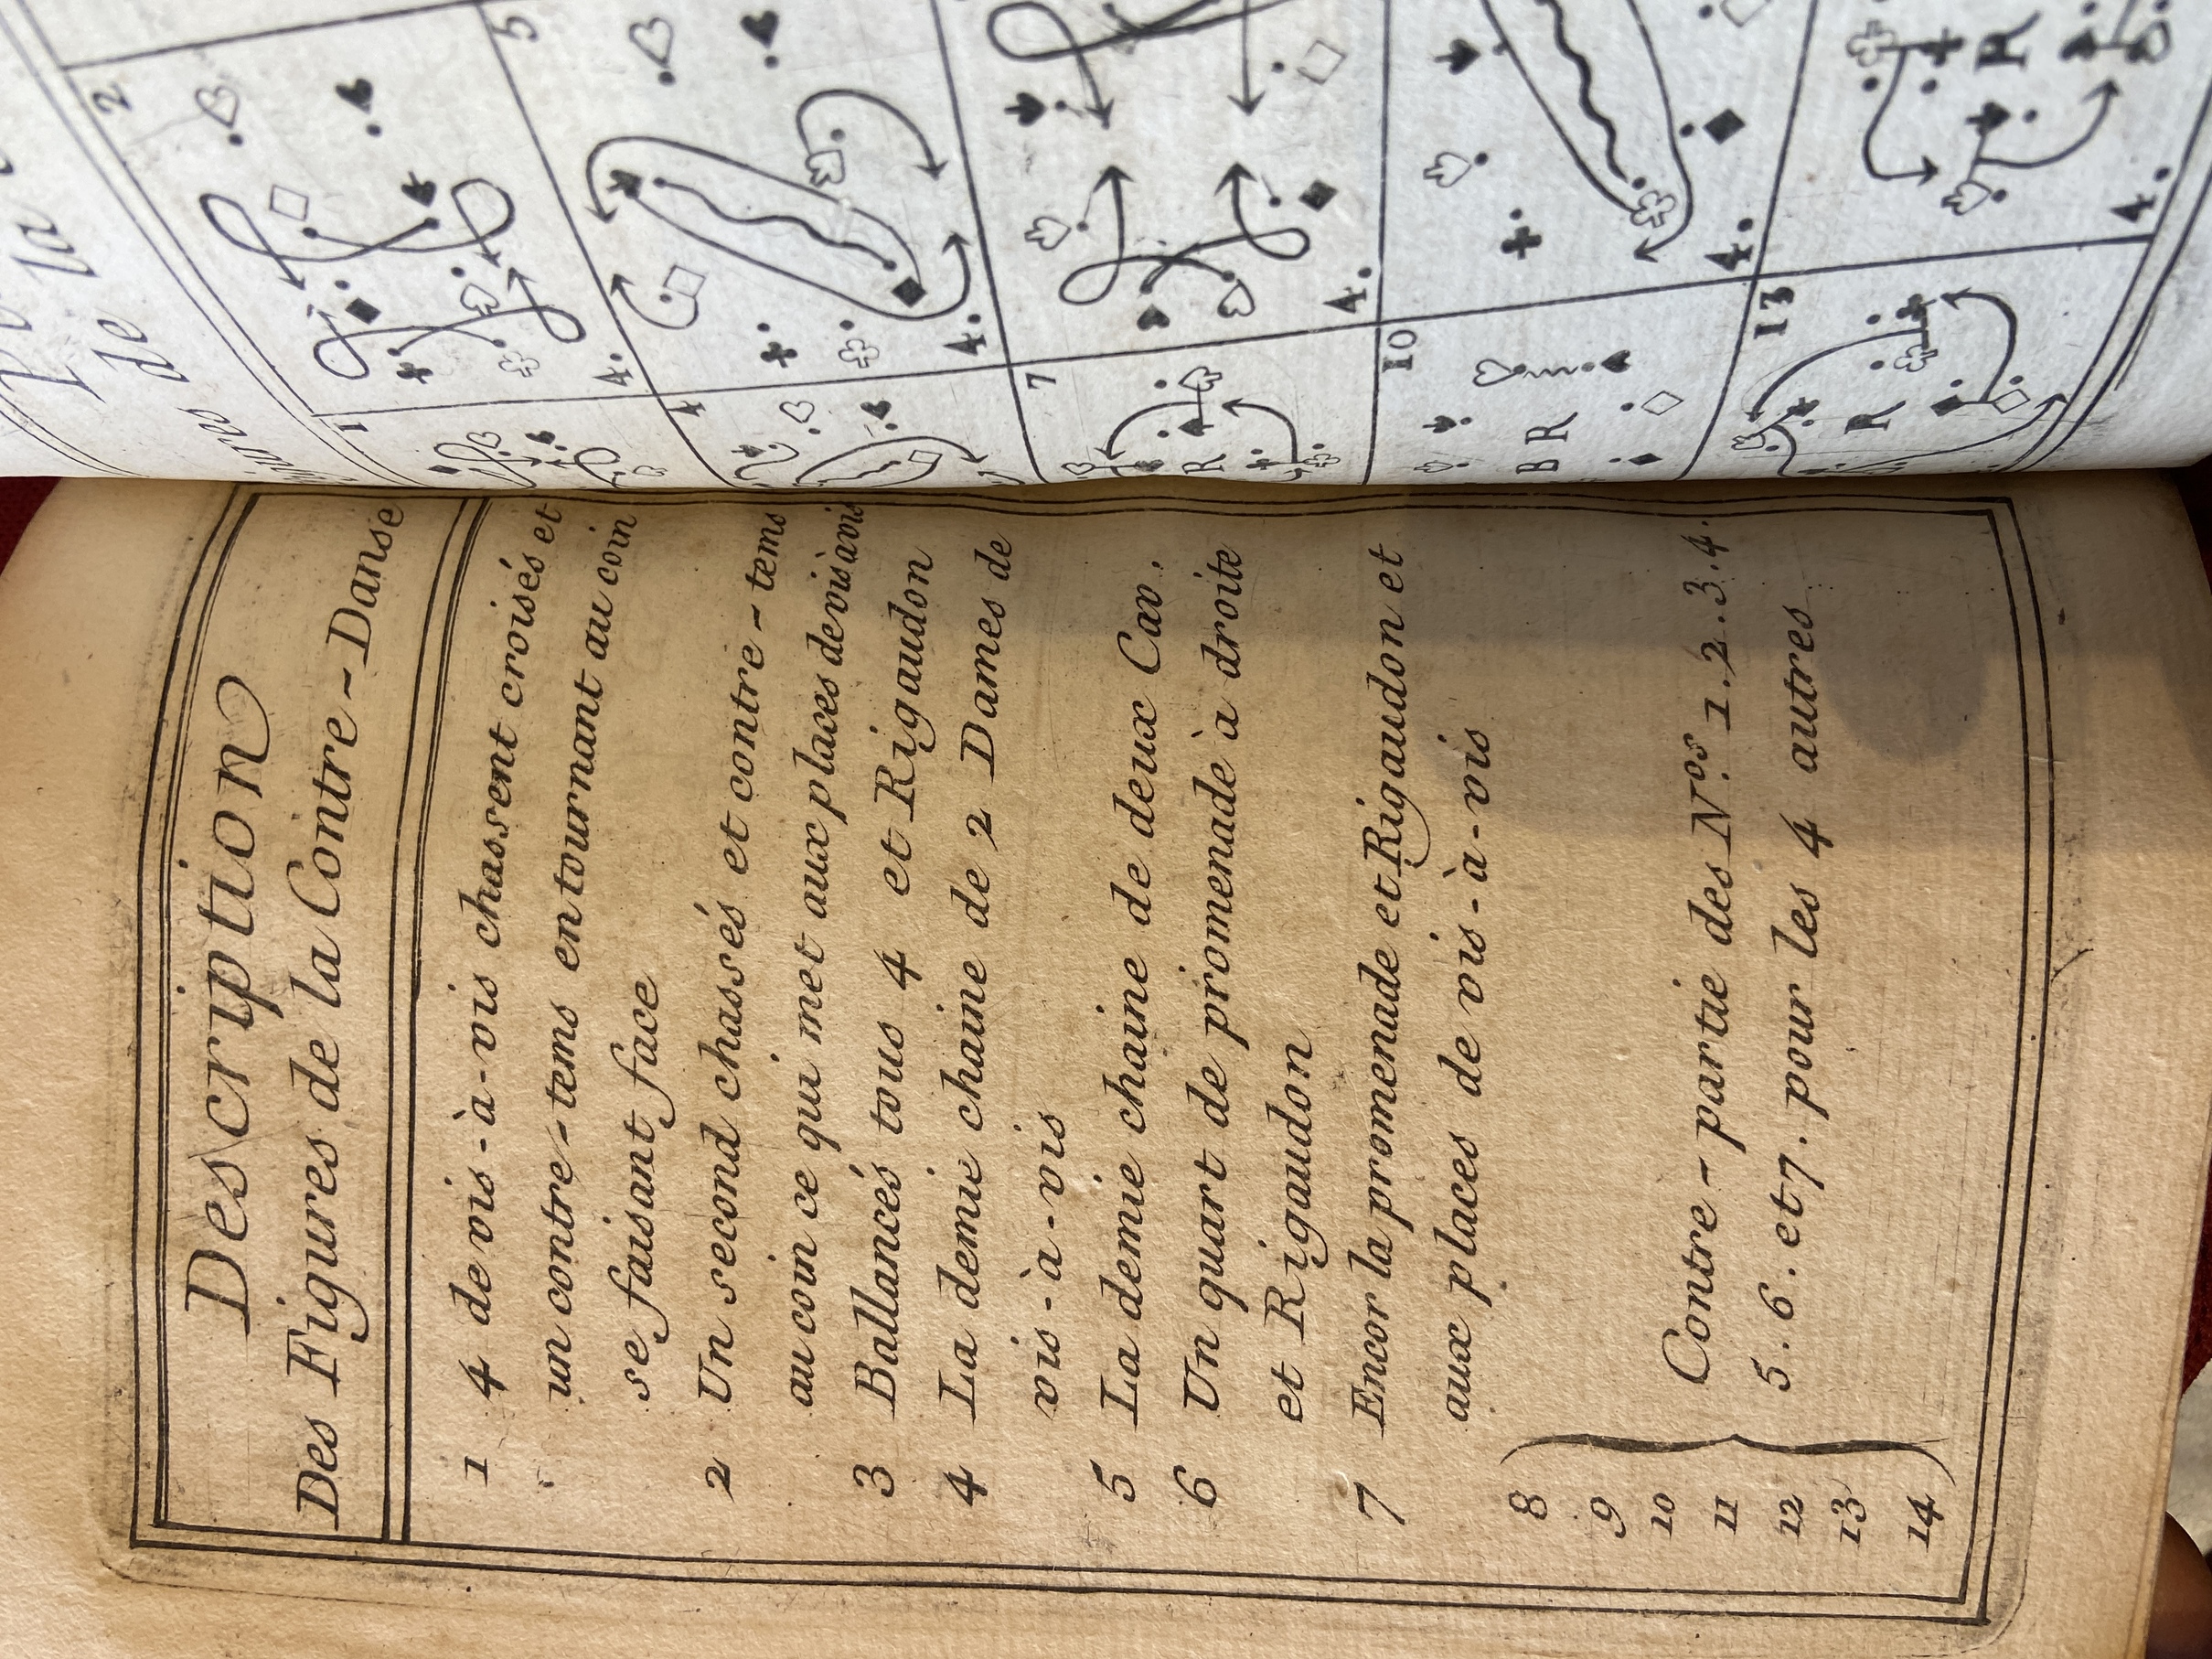 Description
Des Figures de la Contre-Danse
1 4 de vis-à-vis chassent croisés et
un contre-tems en tournant au coin
se faisant face
2 Un second chassés et contre-tems
au coin ce qui met aux places de vis à vis
3 Ballancés tous 4 et Rigaudon
4 La demie chaine de 2 Dames de
vis-à-vis
5 La demie chaine de deux Cav.
6 Un quart de promenade à droite
et Rigaudon
7 Encor la promenade et Rigaudon et
aux places de vis-à-vis
8
9
10
11
12
13
14
Contre-partie des N.os 1.2.3.4.
5.6.et 7. pour les 4 autres
de la
1
2
4.
5
4.
7
4.
10
B R
4.
13
R
R
4.